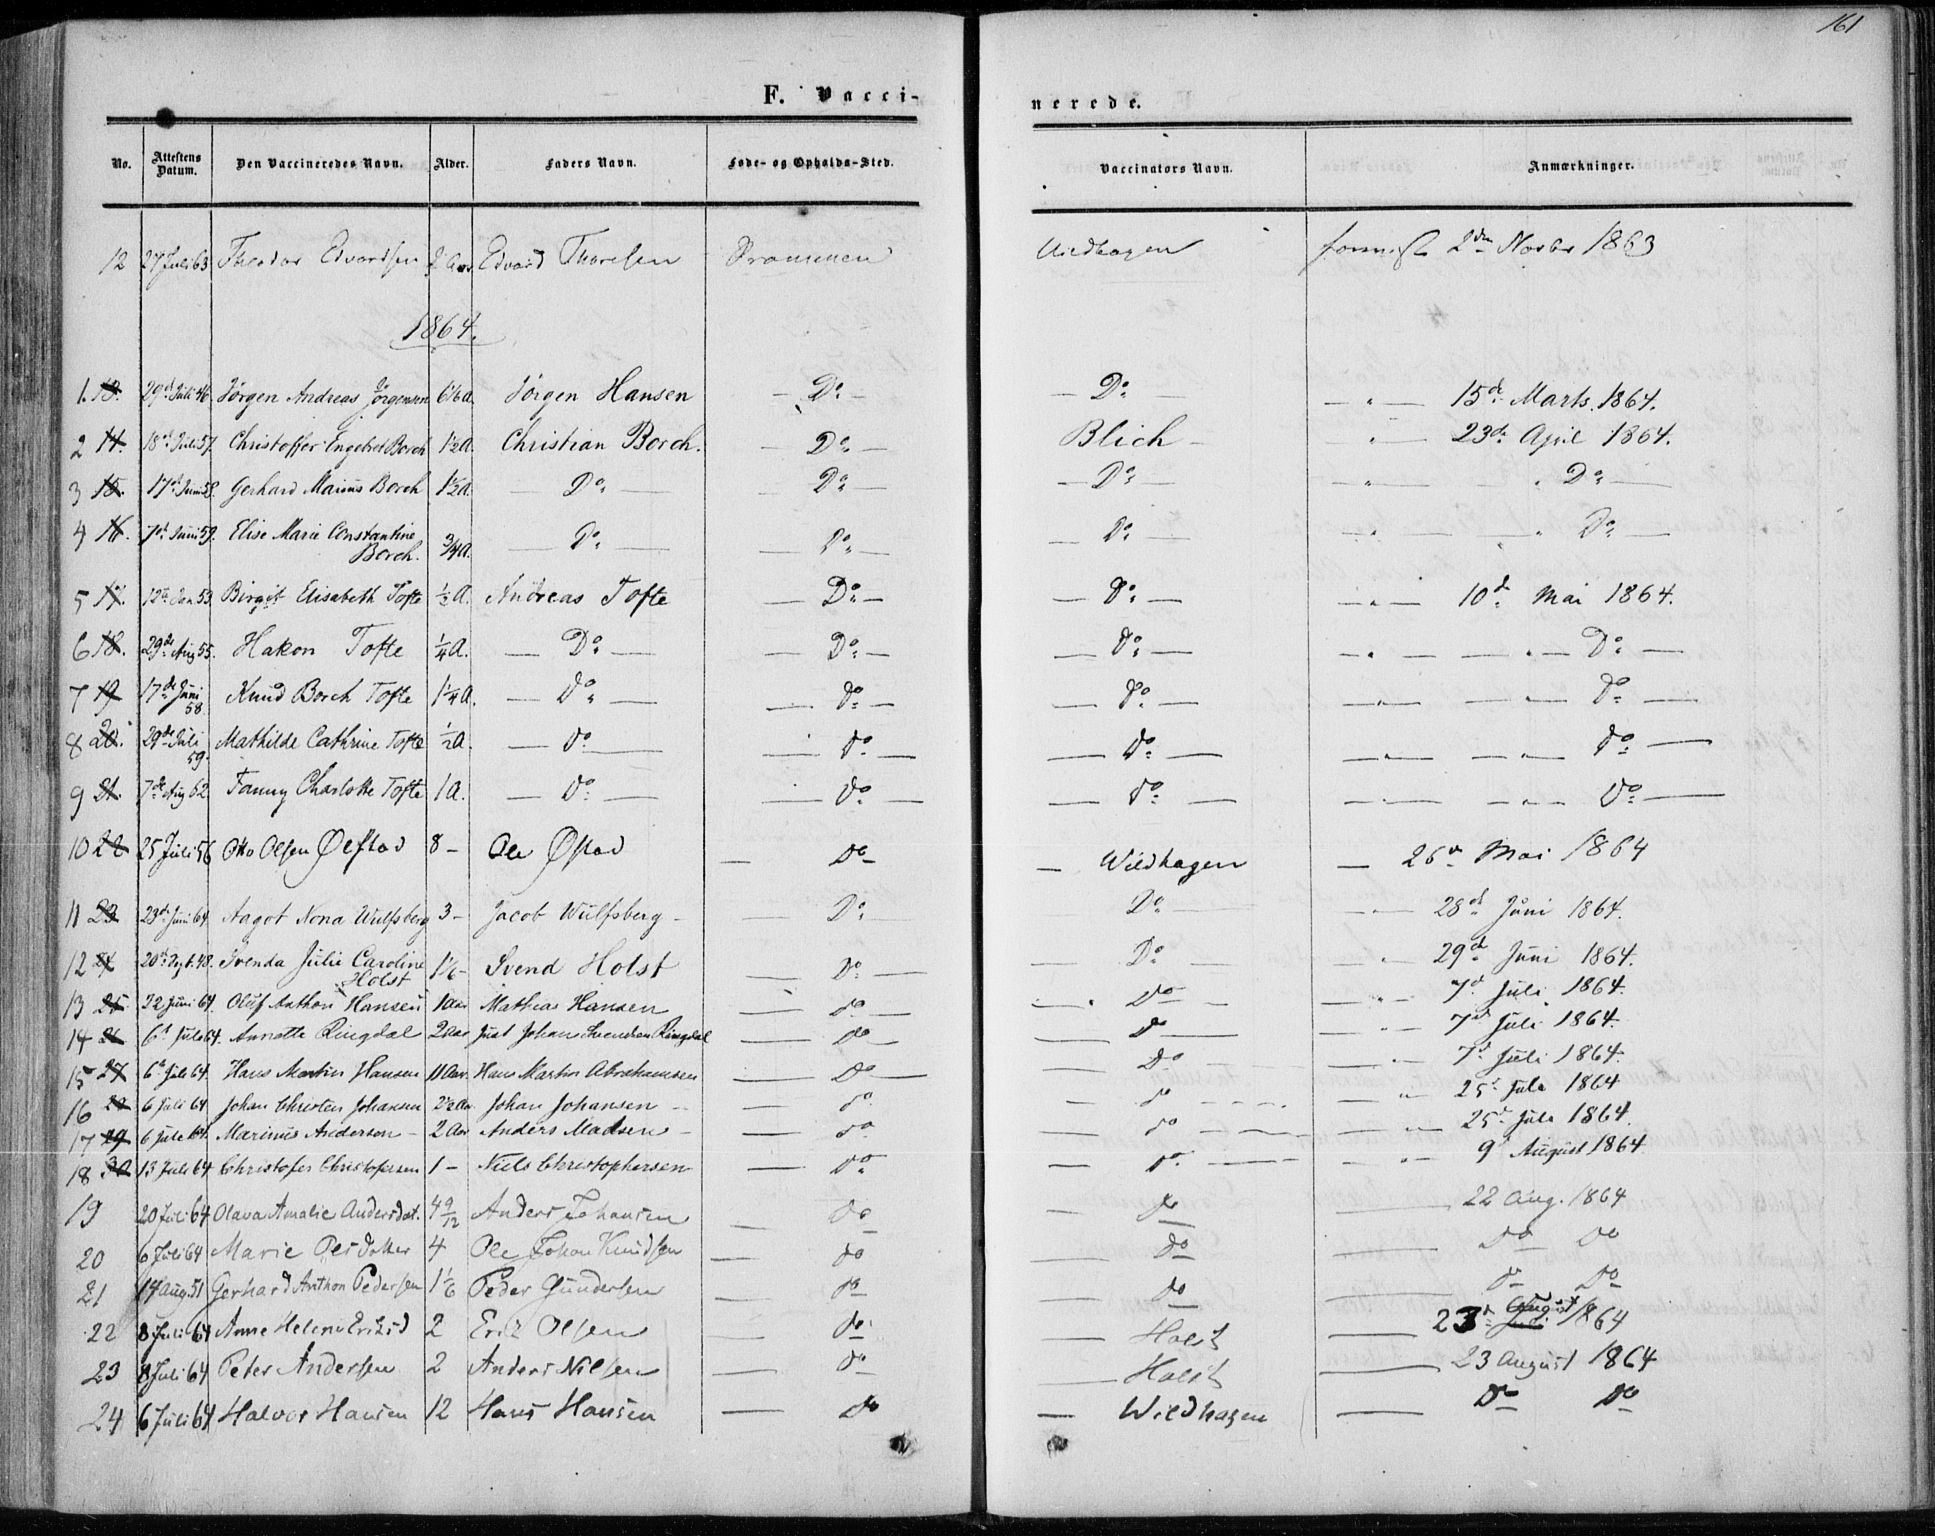 161
F. Vacci-
nerede.
No. Attestens Datum. Den Vaccineredes Navn. Alder. Faders Navn. Føde- og Opholds-Sted. Vaccinators Navn. Anmærkninger.
12 27 Juli 63 Theodor Edvardsen 2 Aar Edvard Thoresen Drammen Wildhagen 2den Novbr 1863
1864.
1. 13. 29de Juli 46. Jørgen Andreas Jørgensen 6 1/6 A. Jørgen Hansen — Do — — Do — — " — 15de Marts. 1864.
2 14. 18de Juli 57. Christoffer Engebret Borch 1 1/2 A. Christian Borch. — Do — Blich — " — 23de April 1864.
3 15. 17de Juni 58. Gerhard Marius Borch 1 1/2 A. — Do — — Do — — Do — — " — " Do —
4 16. 7de Juni 59. Elise Marie Constantine Borch. 3/4 A. — Do — — Do — — Do — — " — " Do —
5 17. 12te Jan 53. Birgit Elisabeth Tofte 1/2 A. Andreas Tofte — Do — — Do — — " — 10de Mai 1864.
6 18. 29de Aug 55. Hakon Tofte 1/4 A. — Do — — Do — — Do — — " — — " — Do —
7 19 17de Juni 58. Knud Borch Tofte 1 1/4 A. — Do — — Do — — Do — — " — — " — Do —
8 20. 29de Juli 59. Mathilde Cathrine Tofte 1/2 A. — Do — — Do — — Do — — " — — " — Do —
9 21. 7de Aug 62 Fanny Charlotte Tofte 1 A. — Do — — Do — — Do — — " — — " — Do —
10 22 25 Juli 56 Otto Olsen Ølstad 8 — Ole Østad — Do — Wildhagen — 26de Mai 1864
11 23 23de Juni 64 Aagot Nona Wulfsberg 3 — Jacob Wulfsberg — Do Do — — " — 28de Juni 1864.
12 24 20de 48. Svenda Julie Caroline Holst 1 1/6 — Svend Holst — Do — Do — — " — 29de Juni 1864.
13 25 22 Juni 64. Oluf Anthon Hansen 1 Aar Mathias Hansen — Do — — " Do — — " — 7de Juli 1864.
14 26 6te Juli 64. Annette Ringdal 2 Aar Just Johan Ringdal — Do — — Do — — " — 7de Juli 1864.
15 27 6te Juli 64. Hans Martin Hansen 11 Aar. Hans Martin Abrahamsen — Do — — Do — — " — 7de Juli 1864.
16 28 6 Juli 64 Johan Christen Johansen 2 1/2 Aar Johan Johansen — — Do — Do — — " — 25de Juli 1864
17 29 6 Juli 64. Marinus Andersen — 2 Aar Anders Madsen — — Do — Do — — " — 25de Juli 1864.
18 30 13 Juli 64 Christofer Christofersen 1 — Niels Christophersen — Do — Do — — " — 9de August 1864
19 20 Juli 64 Olava Amalie Andersdat. 4 9/12 Anders Johansen — Do — Do — 22 Aug. 1864
20 6 Juli 64 Marie Olsdatter 4 Ole Johan Knudsen — Do — Do — Do Do
21 14 Aug. 51 Gerhard Anthon Pedersen 1 1/6 Peder Gundersen — Do — Do — Do Do
22 8 Juli 64 Anne Helene Eriksd 2 Erik Olsen — Do — Holst — 23de Juli August 1864
23 8 Juli 64 Peter Andersen 2 Anders Nilsen — Do — Holst — 23 August 1864
24 6 Juli 64 Halvor Hansen 12 Hans Hansen — Do — Wildhagen — Do Do